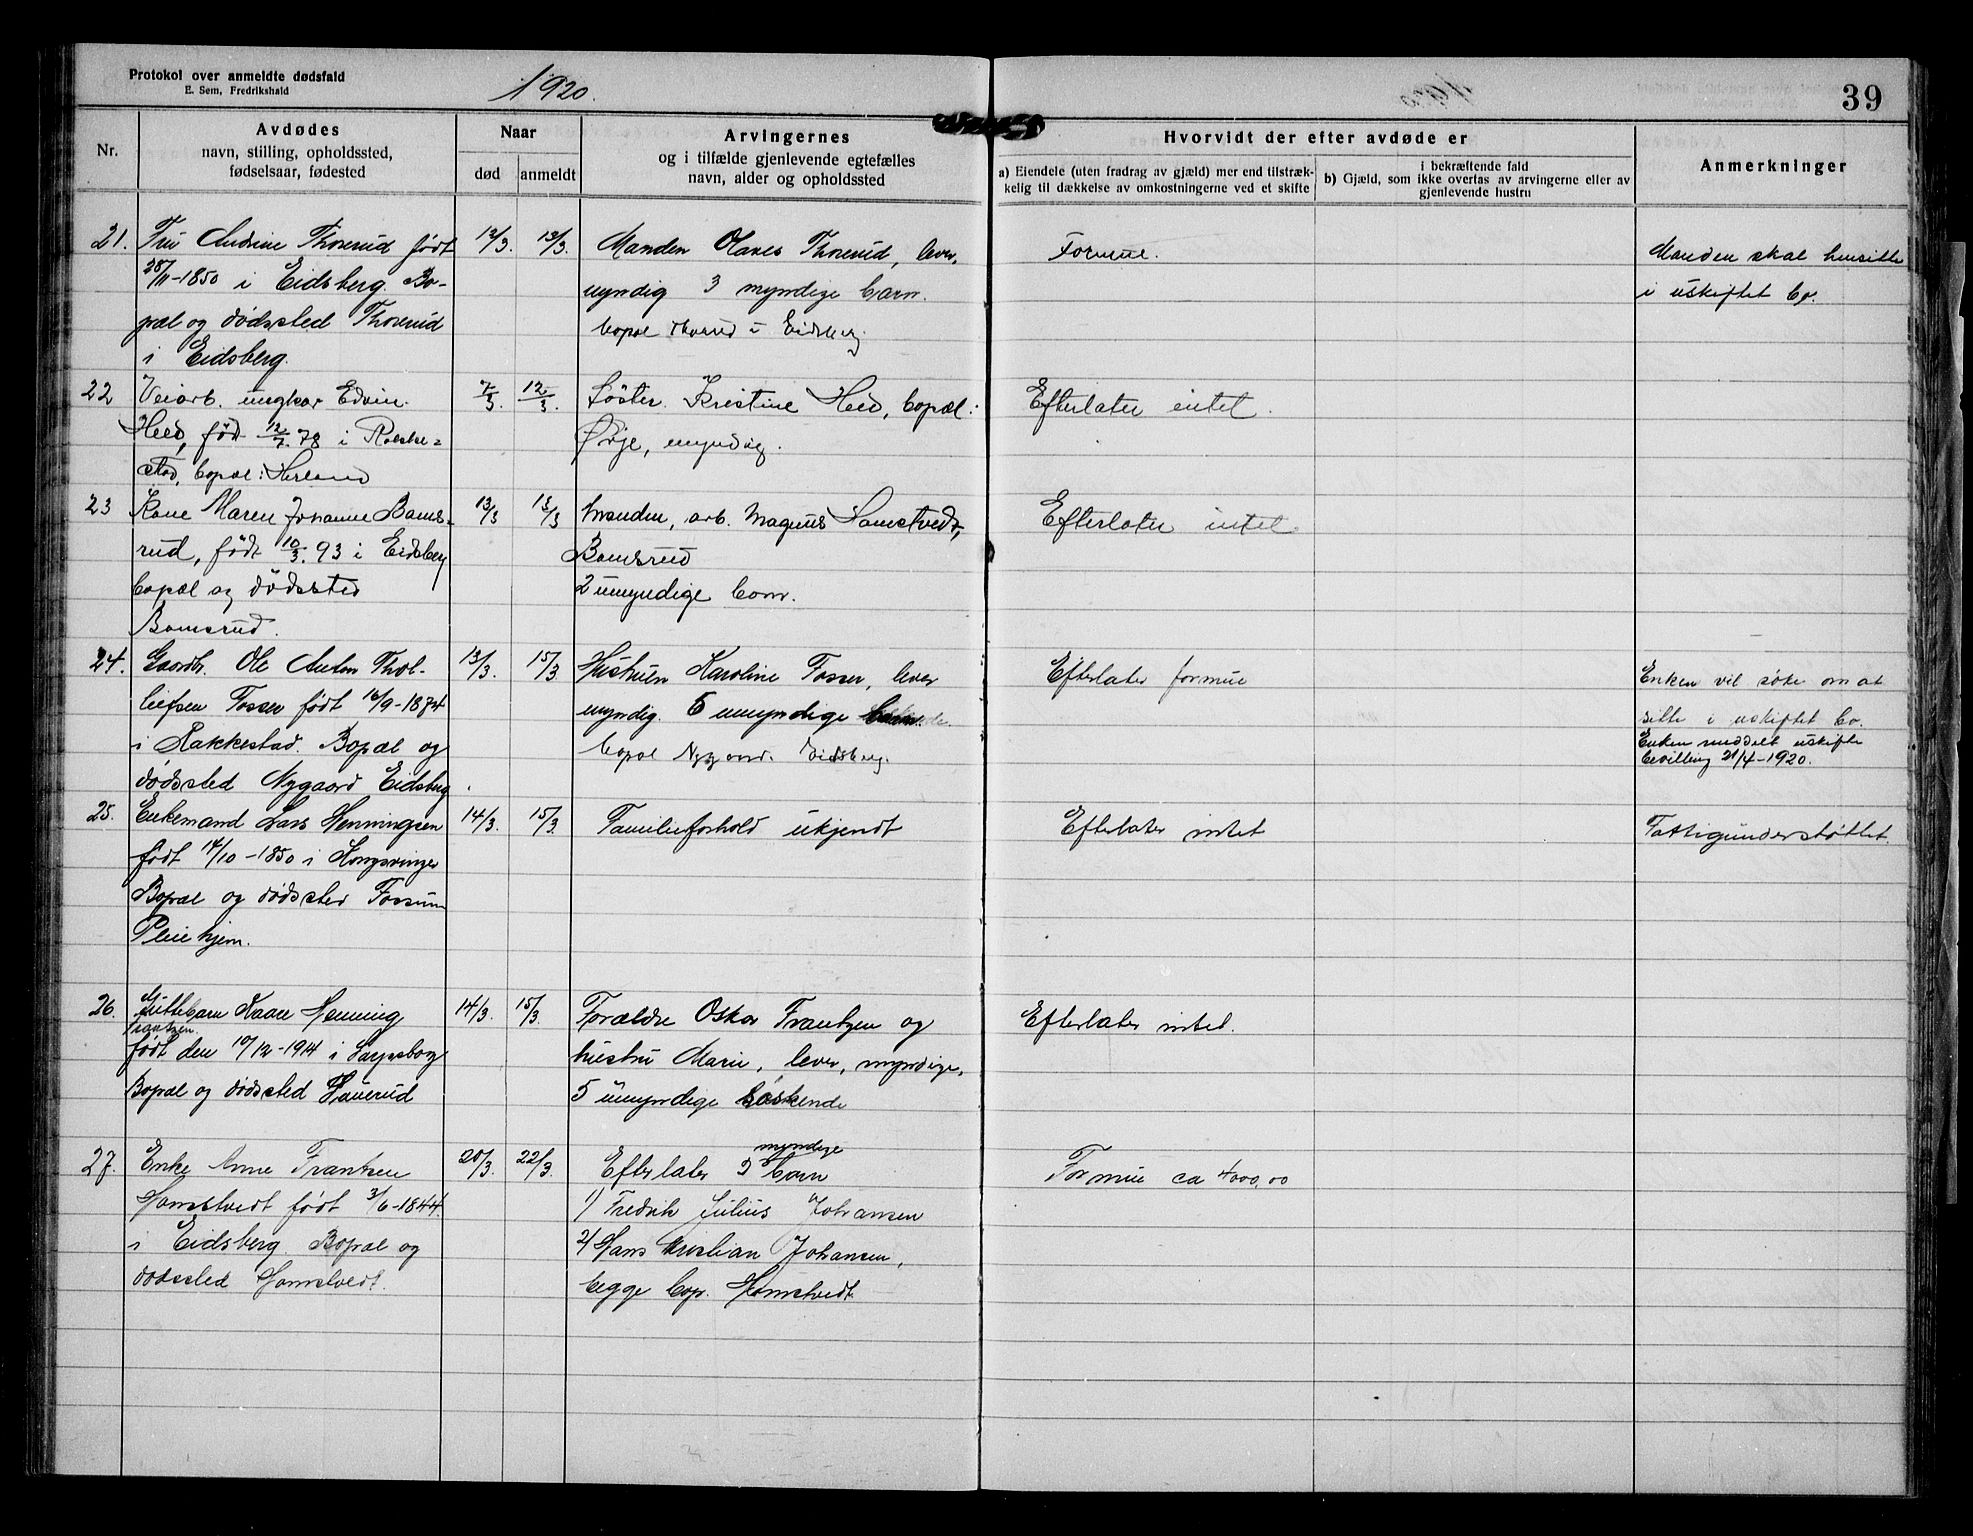 Protokol over anmeldte dødsfald
E. Sem, Fredrikshald
1920.
39
Nr.
Avdødes
navn, stilling, opholdssted,
fødselsaar, fødested
Naar
død
anmeldt
Arvingernes
og i tilfælde gjenlevende egtefælles
navn, alder og opholdssted
Hvorvidt der efter avdøde er
a) Eiendele (uten fradrag av gjæld) mer end tilstræk-
kelig til dækkelse av omkostningerne ved et skifte
i bekræftende fald
b) Gjæld, som ikke overtas av arvingerne eller av
gjenlevende hustru
Anmerkninger
21.
Fru Andrine Thorerud født
28/11-1850 i Eidsberg. Bo-
pæl og dødssted Thorerud
i Eidsberg.
12/3.
13/3.
Manden Olaves Thorerud, lever,
myndig 3 myndige barn.
bopæl Thorerud i Eidsberg
Formue.
Manden skal hensitte
i uskiftet bo.
22
Veiarb. ungkar Edvin
Heed, født 12/7. 78 i Rakke-
stad, bopæl: Herland
7/3.
12/3.
Søster Kristine Heed, bopæl:
Ørje, myndig.
Efterlater intet.
23
Kone Maren Johanne Bams-
rud, født 10/3. 93 i Eidsberg
bopæl og dødssted
Bamsrud.
13/3
13/3
Manden, arb. Magnus Hamstvedt,
Bamsrud
2 umyndige barn.
Efterlater intet.
24.
Gaardb. Ole Anton Thol-
leifsen Fosser født 16/9-1874
i Rakkestad. Bopæl og
dødssted Nygaard Eidsberg.
13/3.
15/3
Hustruen Karoline Fosser, lever
myndig. 5 umyndige barn.
bopæl Nygaard. Eidsberg.
Efterlater formue
Enken vil søke om at
sitte i uskiftet bo.
Enken meddelt uskifte
bevilling 21/4-1920.
25.
Enkemand Lars Henningsen
født 14/10-1850 i Kongsvinger
Bopæl og dødssted Fossum
Pleiehjem.
14/3.
15/3.
Familieforhold ukjendt
Efterlater intet
Fattigunderstøttet.
26.
Guttebarn Kaare Henning
Frantzen
født den 10/12-1914 i Sarpsborg
Bopæl og dødssted Haverud
14/3.
15/3.
Forældre Oskar Frantzen og
hustru Marie, lever, myndige,
5 umyndige søskende
Efterlater intet.
27.
Enke Anne Frantsen
Hamstvedt født 3/6-1844.
i Eidsberg. Bopæl og
dødssted Hamstvedt.
20/3.
22/3.
myndige
Efterlater 2 barn
1) Fredrik Julius Johansen
2) Hans Kristian Johansen,
begge bop. Hamstvedt
Formue ca 4000,00